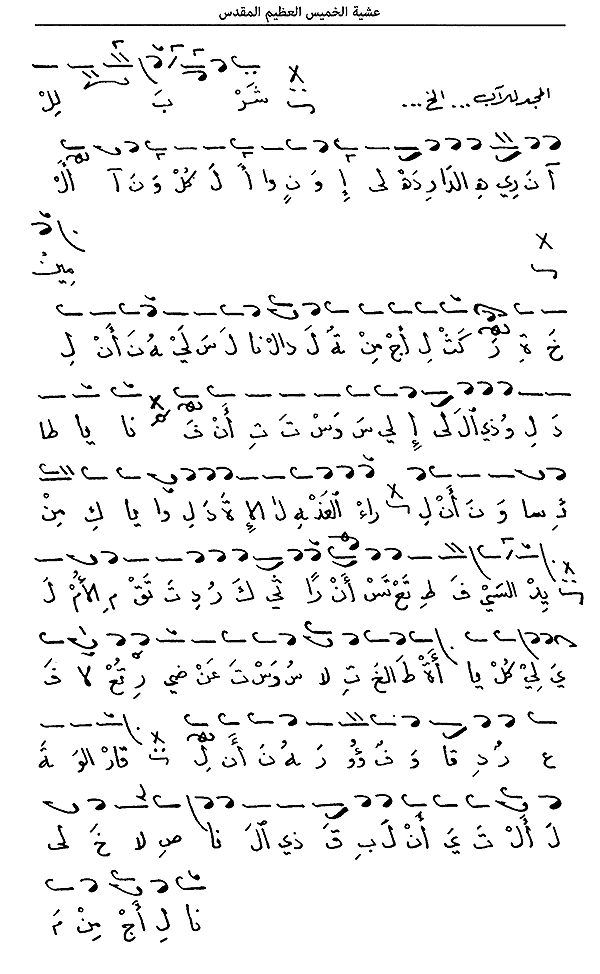 عشية الخميس العظيم المقدس
المجد للآب... الخ... شَرْ بَ لِلْ
آ نَ رِي هِ الدَّا رِ دَهْ لى إِ وَ نٍ وا أَ لَ كُلْ وَ نَ آ أَلْ
مِينْ
خَ ةِ رَ كَتْ لِ أَجْ مِنْ ةُ لَ دالْ نا لَ سَ لَيْ هُ نَ أَنْ لِ
دَ لِ وُ ذي آلْ لَى إِ لي سَ وَسْ تَ تِ أَنْ فَ نا يا طا
ئِ سا وَ نَ أَنْ لِ راءْ العَذْ هِ لا الإِ ةَ دَ لِ وا يا كِ مِنْ
يِدْ السَيْ فَ طِ تَعْ نَسْ أَنْ رًا ثي كَ رُ دِ تَ تَقْ مِ الأُمْ لَ
يَ لِيْ كُلْ يا أَةْ طَ الخَ تِ لا سُ وَسْ تَ عَنْ ضي رِ تُعْ لا فَ
ع رُ دِ قا وَ فٌ ؤُو رَ هُ نَ أَنَ لِ قارْ الوَ ةَ
لَ أَلْ تَ يَ أَنْ لَ بِ قَ ذي آلَ نا صِ لا خَ لى
نا لِ أَجْ مِنْ مَ